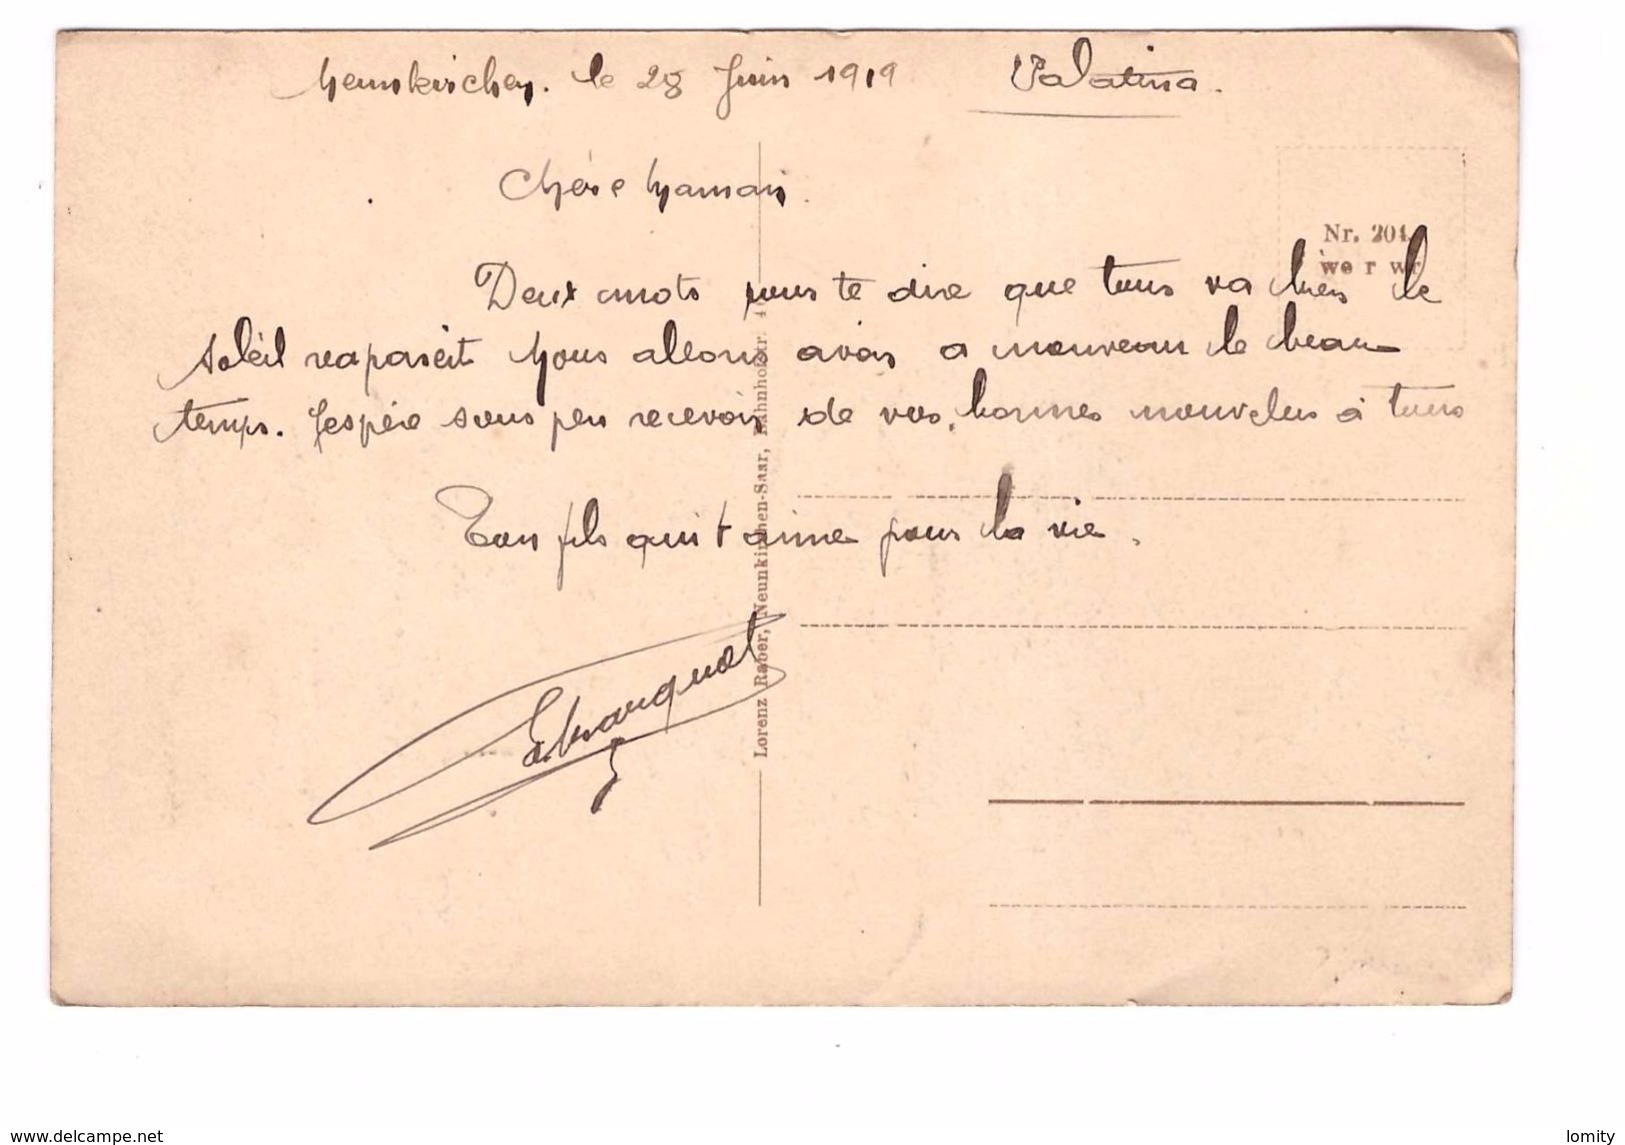 Neunkirchen. le 28 Juin 1919 Palatina.
Chère Maman.
Nr. 201
we r wr
Deux mots pour te dire que tous va bien le
soleil raparèit Nous allons avoir a nouveau le beau
temps. Jespère sous peu recevoir de vos bonnes nouvelles à tous
Ton fils qui t aime pour la vie.
Lorenz Raber, Neunkirchen-Saar, Bahnhofstr. 4
www.delcampe.net
lomity